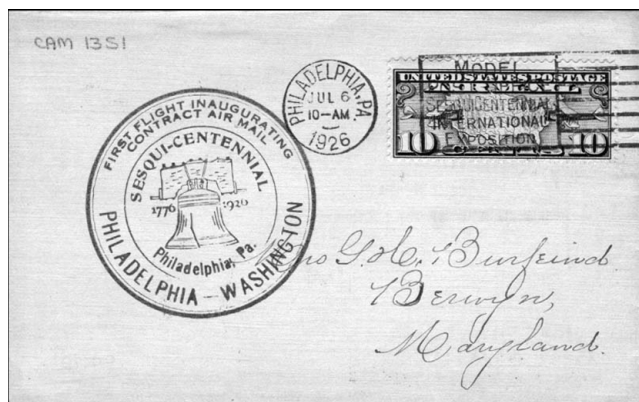 CAM 13S1
FIRST FLIGHT INAUGURATING
CONTRACT AIR MAIL
SESQUI-CENTENNIAL
1776 1926
Philadelphia, Pa.
PHILADELPHIA - WASHINGTON
PHILADELPHIA, PA.
JUL 6
10-AM
1926
MODEL
UNITED STATES POSTAGE
SESQUICENTENNIAL
INTERNATIONAL
EXPOSITION
10 10
G. H. Burfeind
Berwyn,
Maryland.